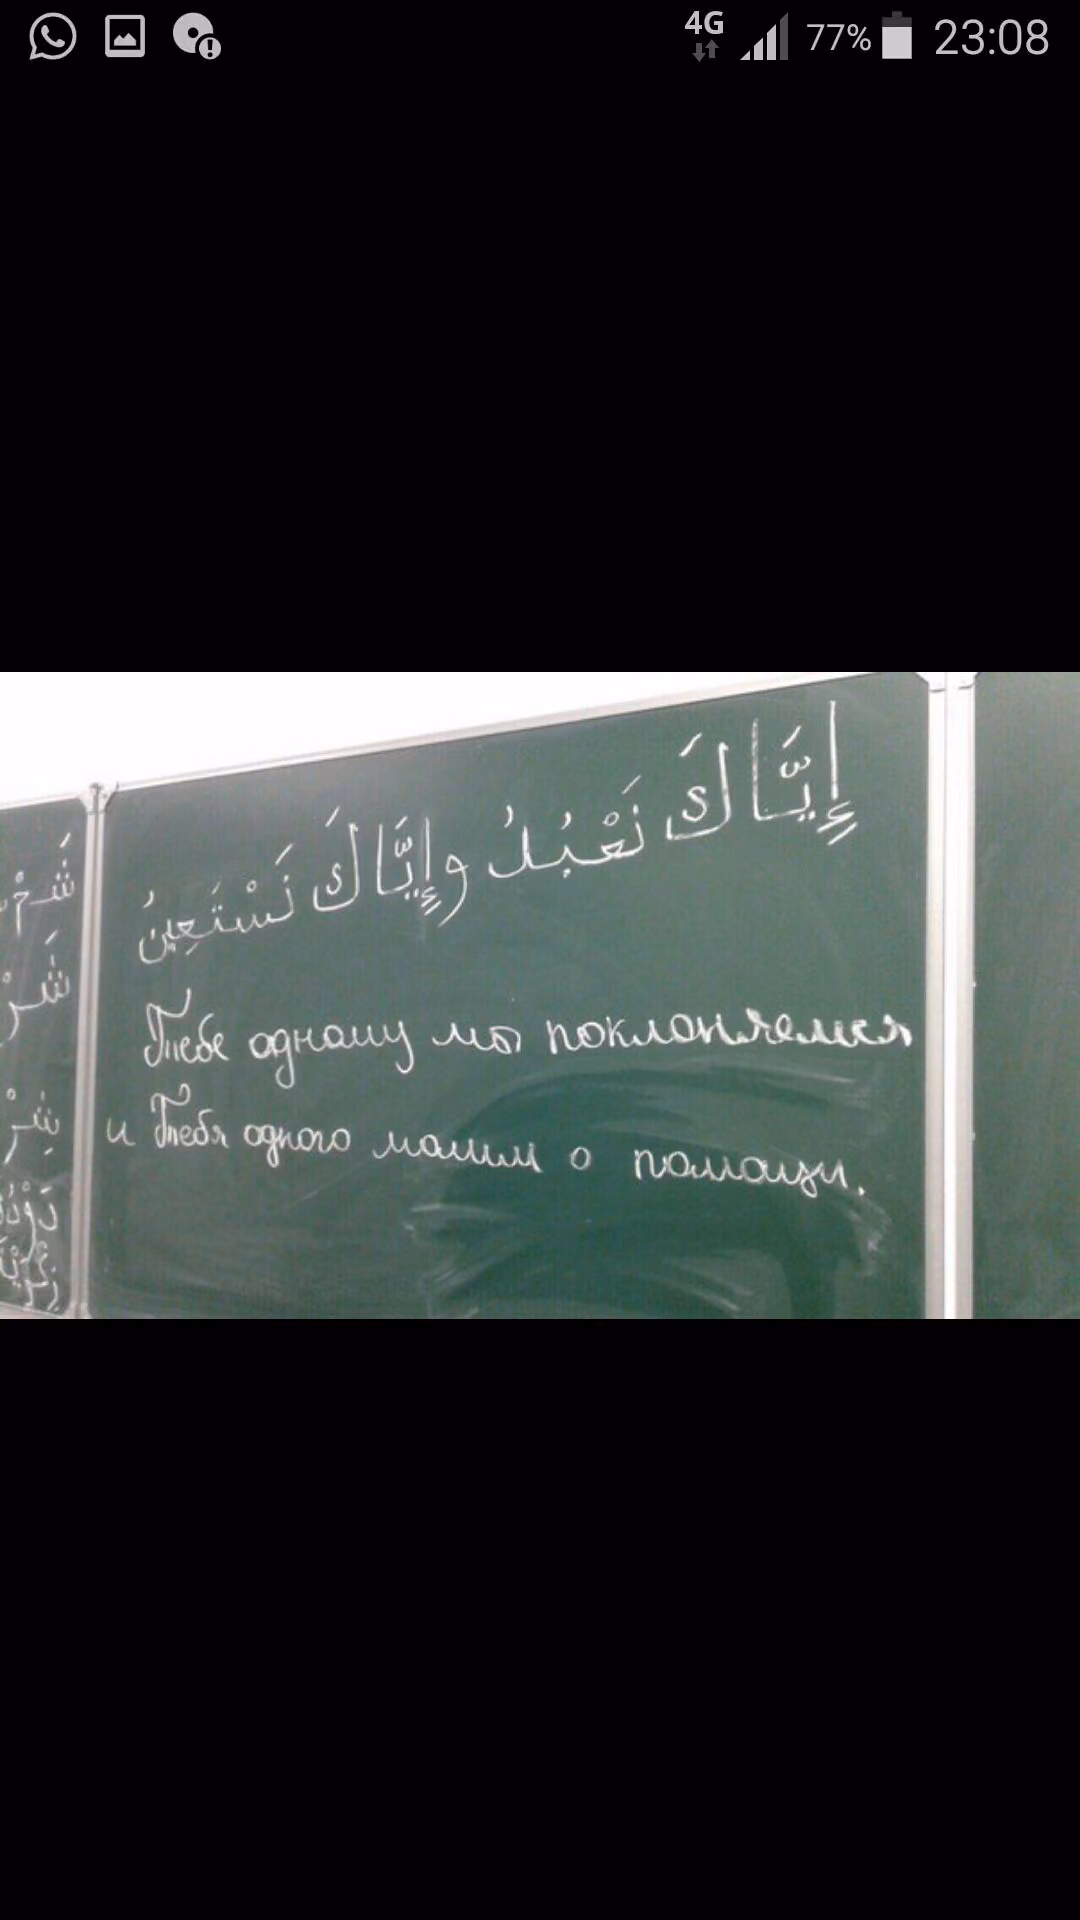 4G 77% 23:08
إِيَّاكَ نَعْبُدُ وإِيَّاكَ نَسْتَعِينُ
Тебе одному мы поклоняемся
и Тебя одного молим о помощи.